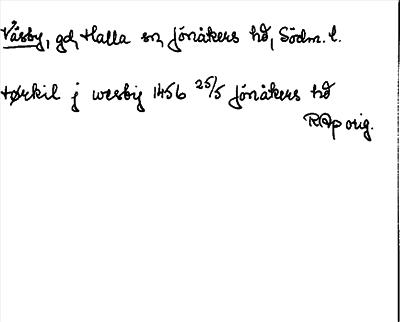 Väsby, gd, Halla sn, Jönåkers hd, Södm. l.
tørkil j wesby 1456 25/5 Jönåkers hd
RAp orig.